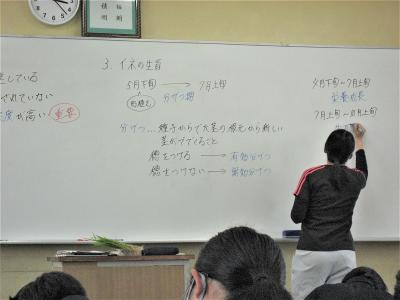 積 極
明 朗
している
されていない
度が高い 重要
3. イネの生育
5月下旬 → 7月上旬
田植え 分げつ期
分げつ…種子からでた茎の根元から新しい
茎がでてくること
穂をつける → 有効分げつ
穂をつけない → 無効分げつ
5月下旬〜7月上旬
栄養成長
7月上旬〜8月上旬